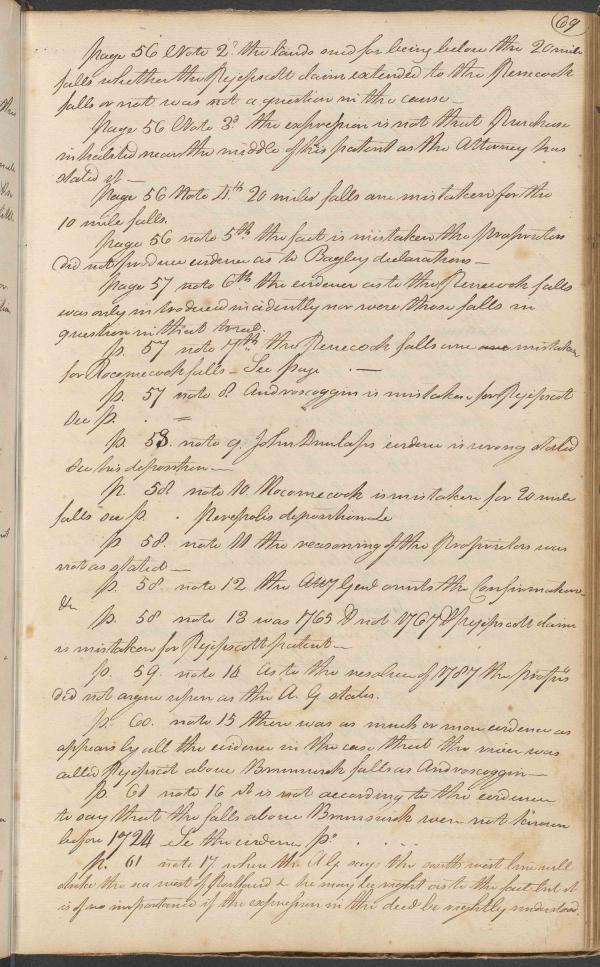 69
Page 56 Note 2d the lands sued for being below the 20 mile
falls whether the Pejepscott claim extended to the Penecook
falls or not was not a question in the cause —
Page 56 Note 3d the expression is not that Purchase
inhabited near the middle of his patent as the Attorney has
stated it —
Page 56 Note 4th 20 miles falls are mistaken for the
10 mile falls.
Page 56 note 5th the fact is mistaken the Proprietors
did not produce evidence as to Bagley declarations —
Page 57 note 6th the evidence as to the Penecook falls
was only introduced incidently nor were those falls in
question in that tryal.
p. 57 note 7th the Penecook falls are mistaken
for Rocomecook falls — See page . —
p. 57 note 8. Androscoggin is mistaken for Pejepscot
See p. . =
p. 58. note 9. John Dunlaps evidence is wrong stated
See his deposition —
p. 58 note 10. Rocomecook is mistaken for 20 mile
falls see p. . deposition &c
p 58. note 11 the reasoning of the Proprietors was
not as stated —
p. 58. note 12 the Atty Genl omits the Confirmation
&c
p. 58 note 13 was 1765 & not 1767 & Pejepscott claim
is mistaken for Pejepscott patent —
p. 59. note 14 as to the resolve of 1787 the proprs
did not argue upon as the A. G states.
p. 60. note 15 there was as much or more evidence as
appears by all the evidence in the case that the river was
called Pejepscot above Brunswick falls as Androscoggin —
p. 61 note 16 it is not according to the evidence
to say that the falls above Brunswick were not known
before 1724 See the evidence p. . . . .
p. 61 note 17 where the A G says the south west line will
strike the sea west of Portland & he may be right as to the fact but it
is of no importance if the expression in the deed be rightly understood.